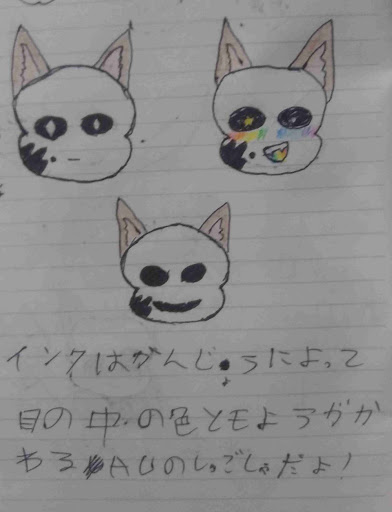 インクはがんじょうによって
目の中の色ともようがか
わるAUのしゅごしゃだよ!